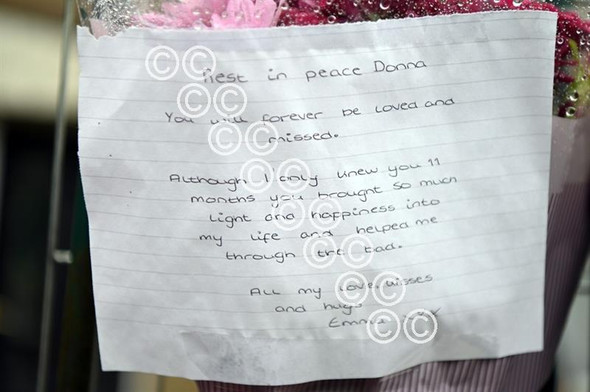 Rest in peace Donna
You will forever be loved and
missed.
Although I only knew you 11
months you brought so much
light and happiness into
my life and helped me
through the bad.
All my love kisses
and hugs
Emma